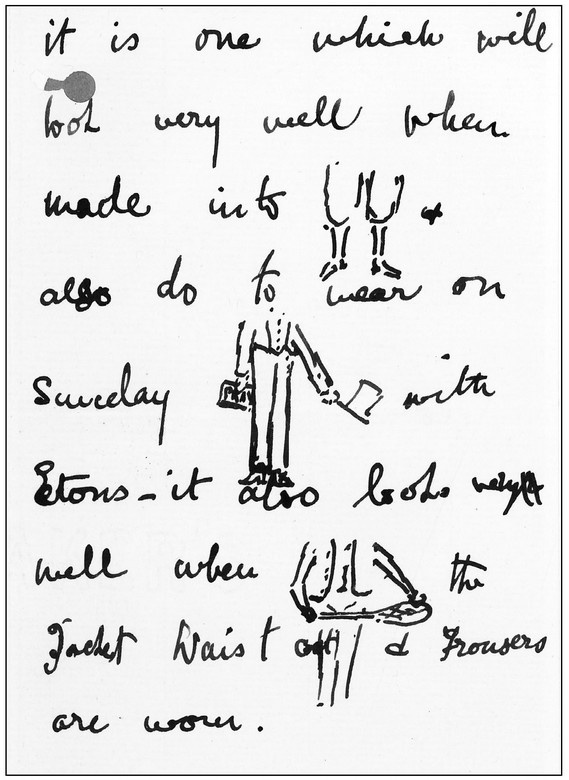 it is one which will
look very well when
made into &
also do to wear on
Sunday with
Etons – it also looks very
well when the
Jacket Waist coat & Trousers
are worn.